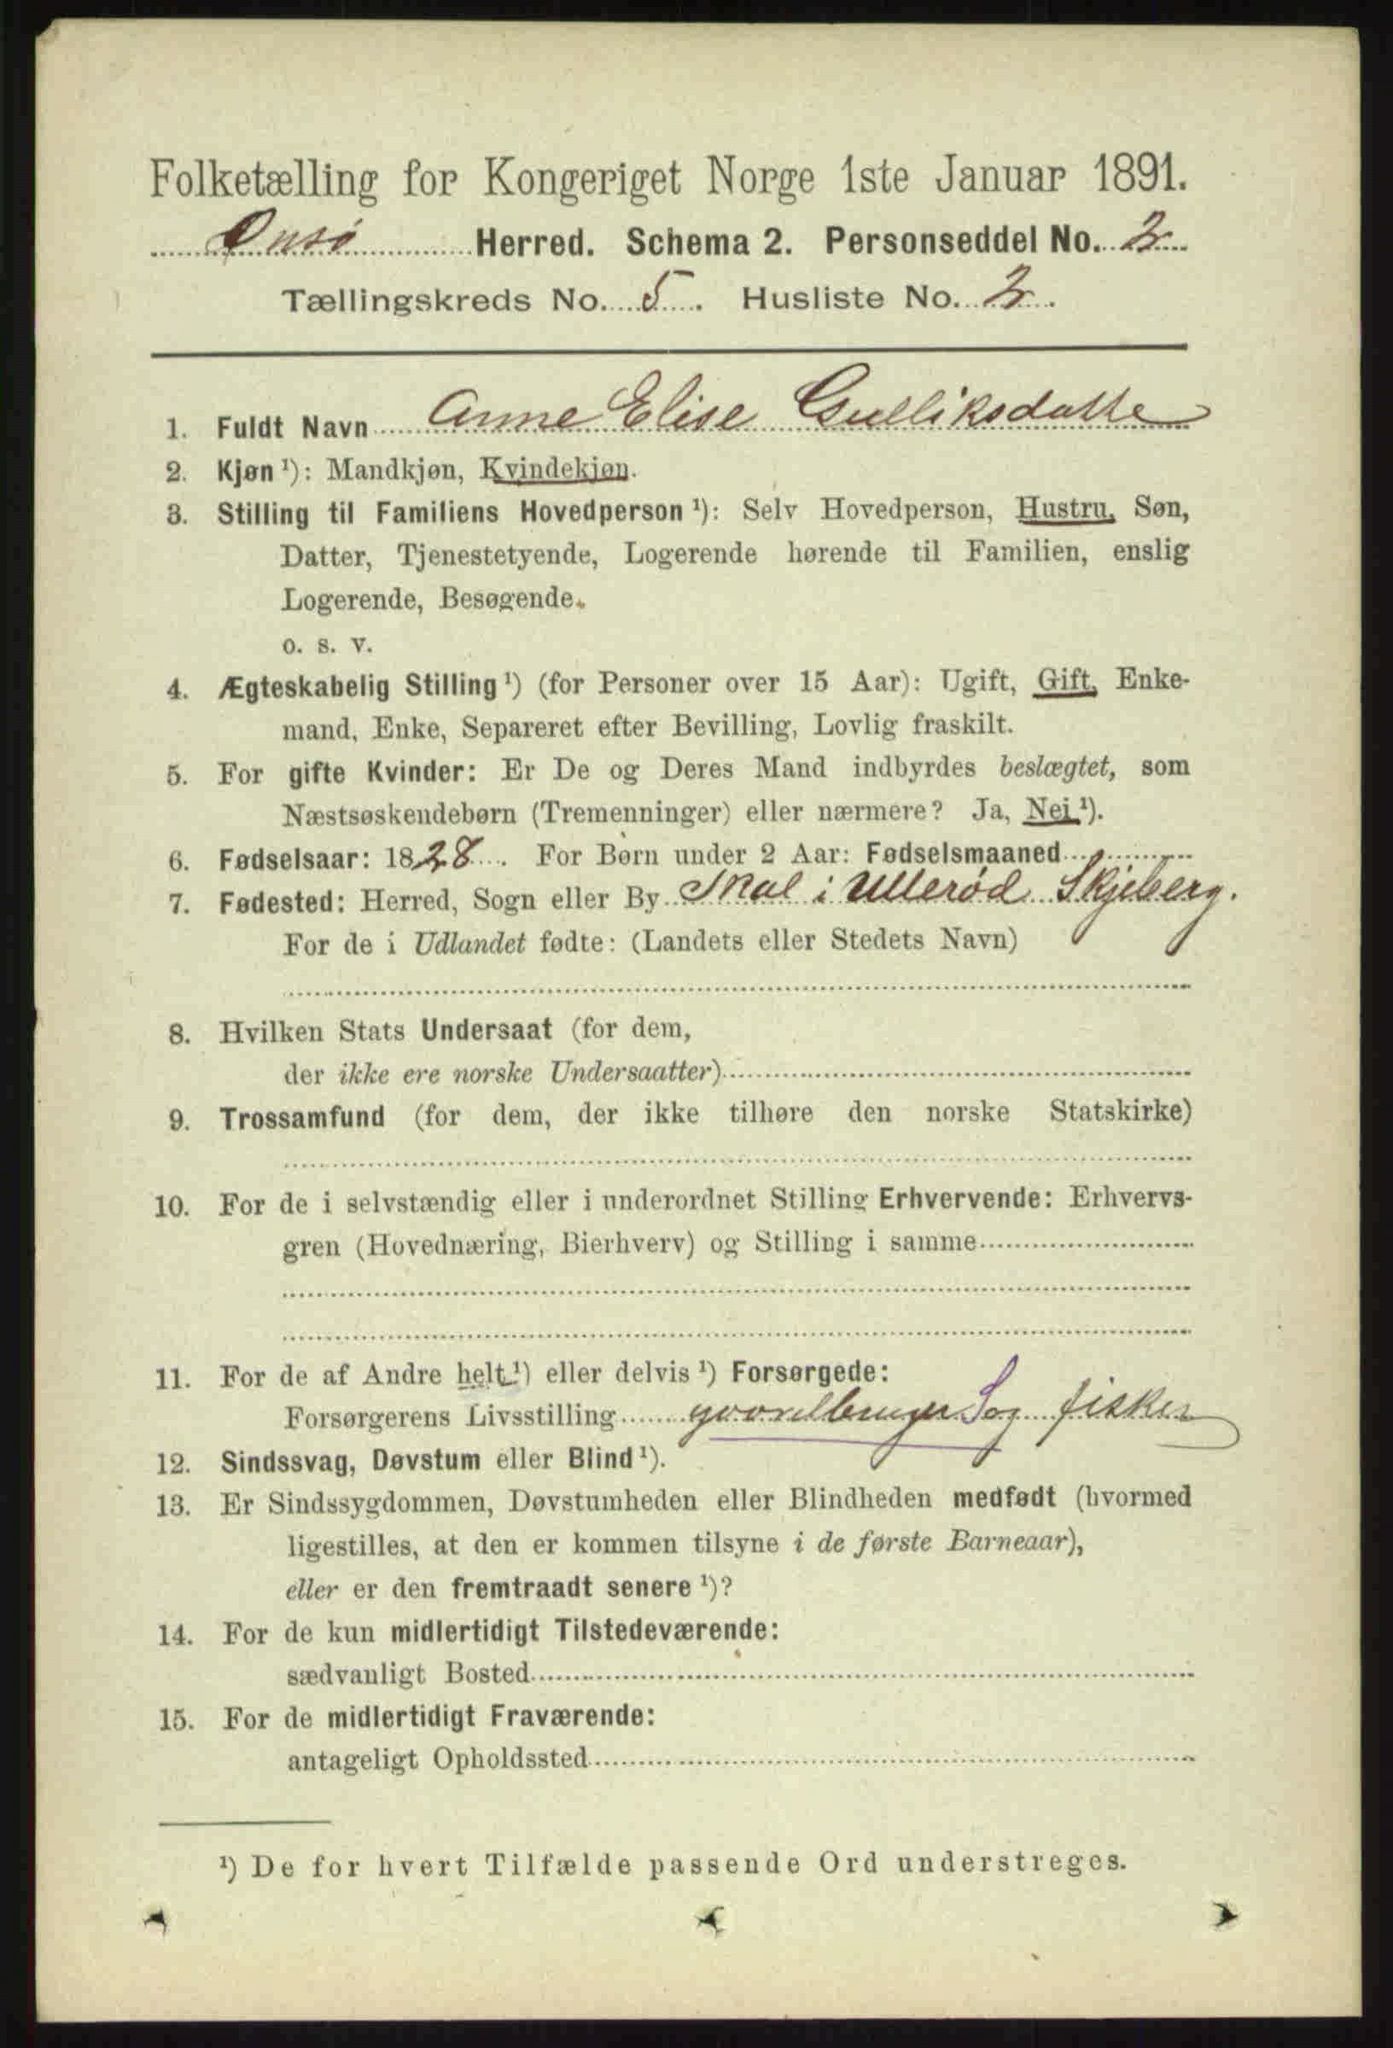 Folketælling for Kongeriget Norge 1ste Januar 1891.
Onsø Herred. Schema 2. Personseddel No. 2
Tællingskreds No. 5. Husliste No. 2.
1. Fuldt Navn Anne Elise Gulliksdatte
2. Kjøn ¹): Mandkjøn, Kvindekjøn.
3. Stilling til Familiens Hovedperson ¹): Selv Hovedperson, Hustru, Søn,
Datter, Tjenestetyende, Logerende hørende til Familien, enslig
Logerende, Besøgende.
o. s. v.
4. Ægteskabelig Stilling ¹) (for Personer over 15 Aar): Ugift, Gift, Enke-
mand, Enke, Separeret efter Bevilling, Lovlig fraskilt.
5. For gifte Kvinder: Er De og Deres Mand indbyrdes beslægtet, som
Næstsøskendebørn (Tremenninger) eller nærmere? Ja, Nei ¹).
6. Fødselsaar: 1828. For Børn under 2 Aar: Fødselsmaaned
7. Fødested: Herred, Sogn eller By i Ullerød Skjeberg.
For de i Udlandet fødte: (Landets eller Stedets Navn)
8. Hvilken Stats Undersaat (for dem,
der ikke ere norske Undersaatter)
9. Trossamfund (for dem, der ikke tilhøre den norske Statskirke)
10. For de i selvstændig eller i underordnet Stilling Erhvervende: Erhvervs-
gren (Hovednæring, Bierhverv) og Stilling i samme
11. For de af Andre helt ¹) eller delvis ¹) Forsørgede:
Forsørgerens Livsstilling gaardbruger S og fisker
12. Sindssvag, Døvstum eller Blind ¹).
13. Er Sindssygdommen, Døvstumheden eller Blindheden medfødt (hvormed
ligestilles, at den er kommen tilsyne i de første Barneaar),
eller er den fremtraadt senere ¹)?
14. For de kun midlertidigt Tilstedeværende:
sædvanligt Bosted
15. For de midlertidigt Fraværende:
antageligt Opholdssted
¹) De for hvert Tilfælde passende Ord understreges.